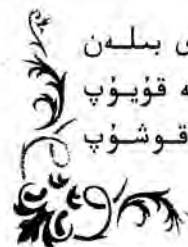 ى بىلەن
ە قۇيۇپ
قوشۇپ